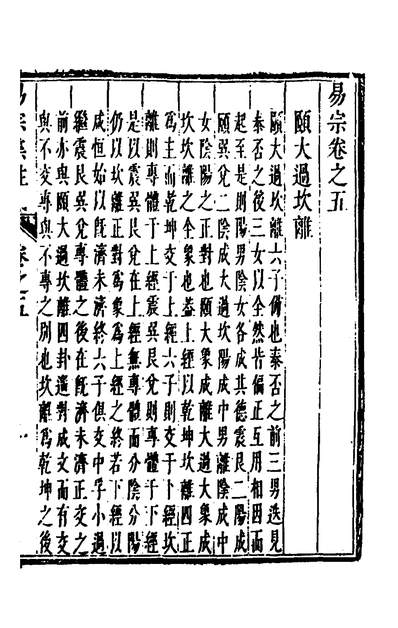 易宗卷之五
頤大過坎離
頤大過坎離六子備也泰否之前三男迭見
泰否之後三女以全然皆偏正互用相因而
起至是則陽男陰女各成其德震艮二陽成
頤巽兌二陰成大過坎陽成中男離陰成中
女陰陽之正對也頤大象成離大過大象成
坎坎離之全象也蓋上經以乾坤坎離四正
為主而乾坤交于上經六子則交于下經坎
離則專體于上經震巽艮兌則專體于下經
是以震巽艮兌在上經無專體而分陰分陽
仍以坎離正對為象為上經之終若下經以
咸恒始以既濟未濟終六子俱交中孚小過
繼震艮巽兌專體之後在既濟未濟正交之
前亦與頤大過坎離四卦遙對成文而有交
與不交專與不專之別也坎離為乾坤之後
易宗集註
卷之五
一